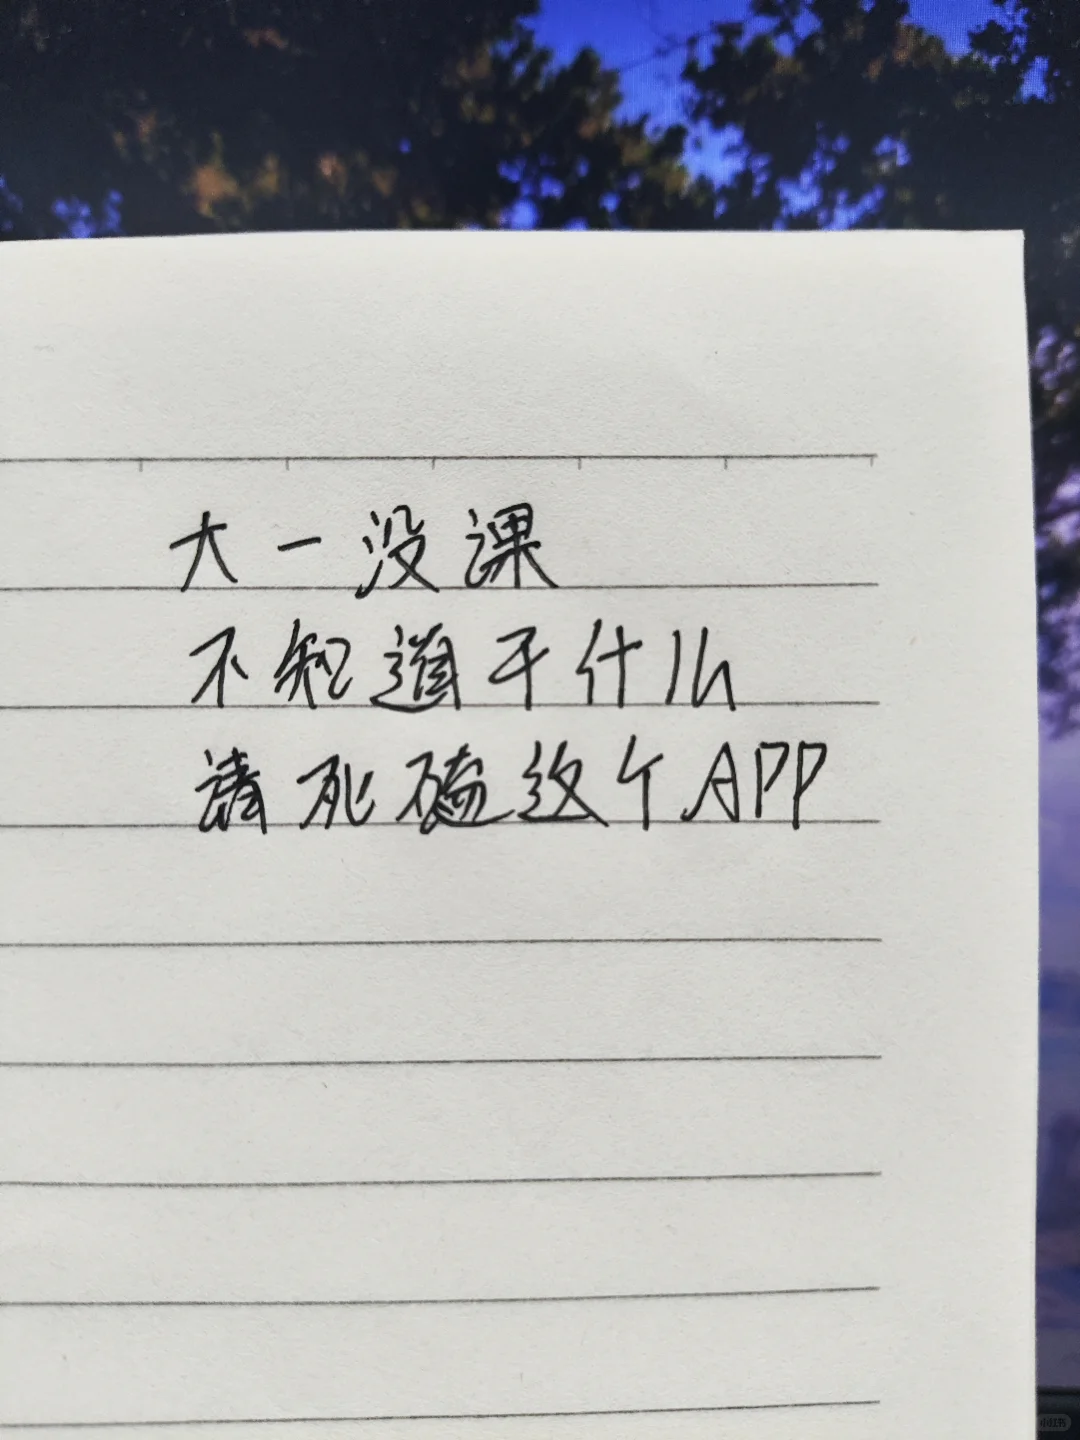 大一没课
不知道干什么
请死磕这个APP
小红书